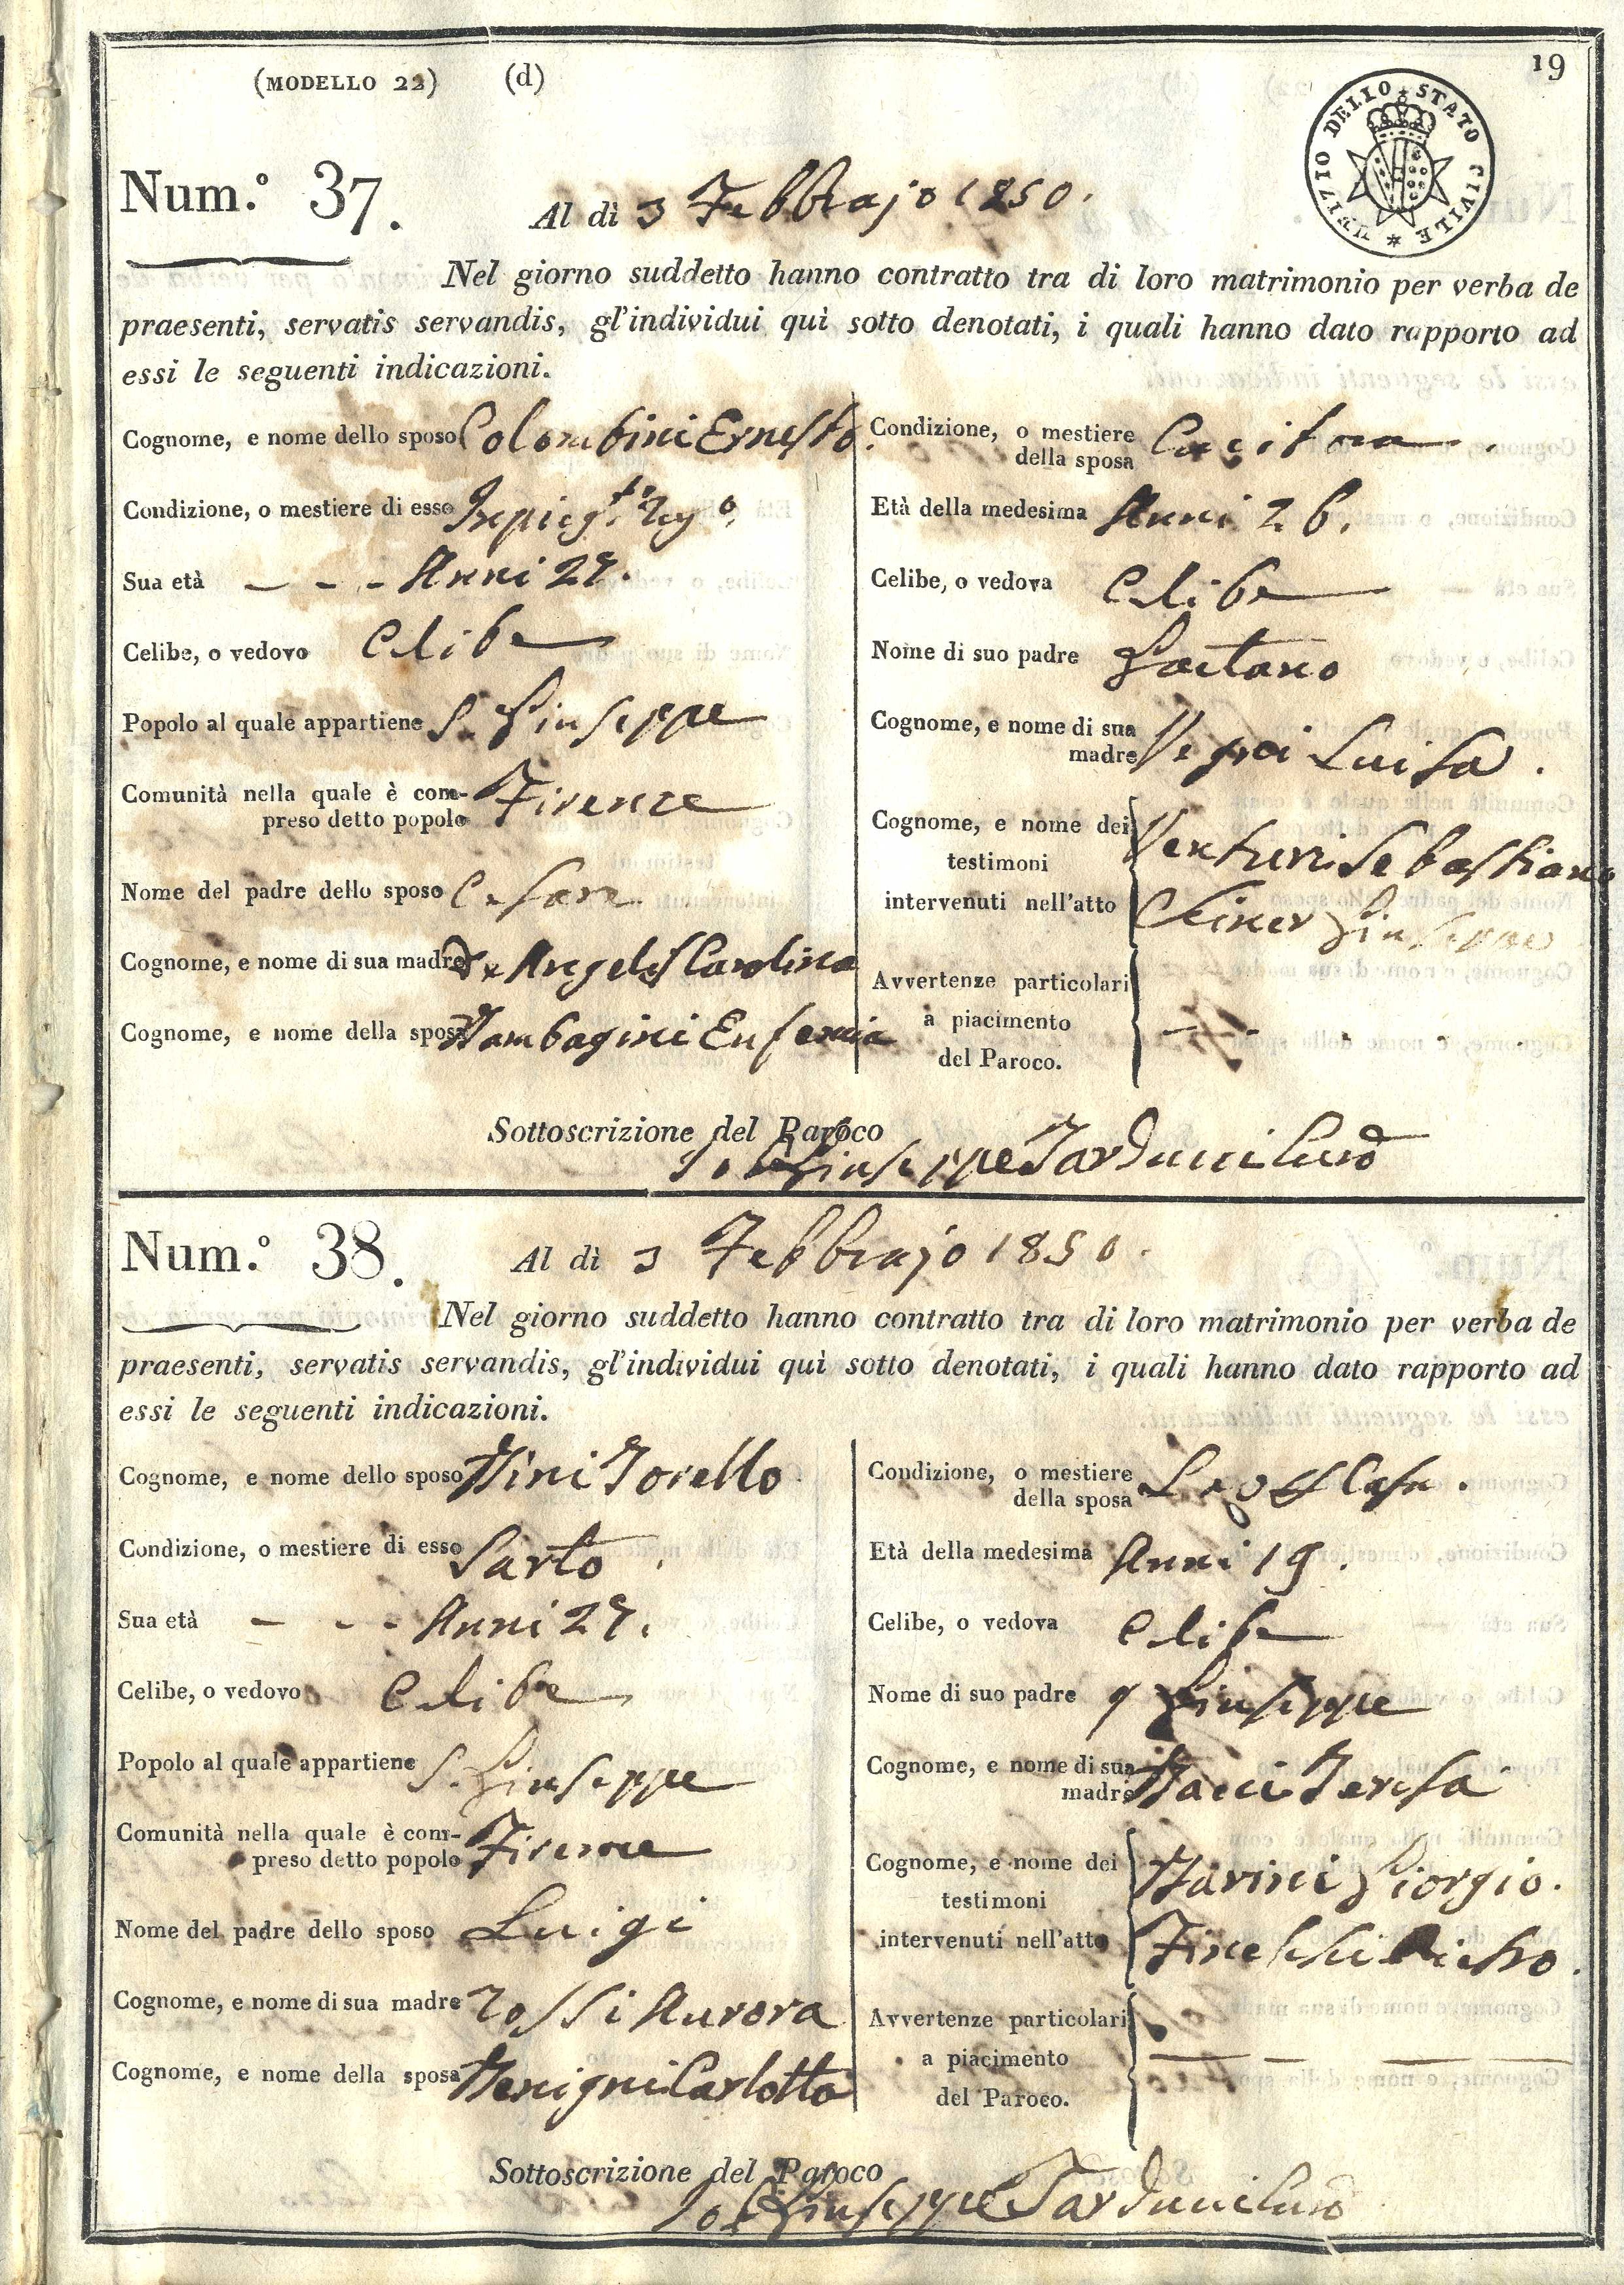 (MODELLO 22) (d)
19
UFIZIO DELLO STATO CIVILE
Num.º 37.
Al dì 3 Febbrajo 1850.
Nel giorno suddetto hanno contratto tra di loro matrimonio per verba de
praesenti, servatis servandis, gl'individui quì sotto denotati, i quali hanno dato rapporto ad
essi le seguenti indicazioni.
Cognome, e nome dello sposo Colombini Ernesto.
Condizione, o mestiere di esso
Sua età - - - Anni 27.
Celibe, o vedovo Celibe
Popolo al quale appartiene S. Giuseppe
Comunità nella quale è com-
preso detto popolo Firenze
Nome del padre dello sposo Cesare
Cognome, e nome di sua madre De Angelis Carolina
Cognome, e nome della sposa Mambagini Eufemia
Condizione, o mestiere
della sposa Cucitora.
Età della medesima Anni 26.
Celibe, o vedova Celibe
Nome di suo padre Gaetano
Cognome, e nome di sua
madre Luisa.
Cognome, e nome dei
testimoni
intervenuti nell'atto
Venturi Sebastiano
Giuseppe
Avvertenze particolari
a piacimento
del Paroco.
Sottoscrizione del Paroco
Giuseppe Tarducci Curo
Num.º 38.
Al dì 3 Febbrajo 1850.
Nel giorno suddetto hanno contratto tra di loro matrimonio per verba de
praesenti, servatis servandis, gl'individui quì sotto denotati, i quali hanno dato rapporto ad
essi le seguenti indicazioni.
Cognome, e nome dello sposo Nini Torello
Condizione, o mestiere di esso Sarto.
Sua età - - - Anni 27.
Celibe, o vedovo Celibe
Popolo al quale appartiene S. Giuseppe
Comunità nella quale è com-
preso detto popolo Firenze
Nome del padre dello sposo Luigi
Cognome, e nome di sua madre Rossi Aurora
Cognome, e nome della sposa Menigni Carlotta
Condizione, o mestiere
della sposa Casa.
Età della medesima Anni 19.
Celibe, o vedova Celibe
Nome di suo padre q Giuseppe
Cognome, e nome di sua
madre Teresa
Cognome, e nome dei
testimoni
intervenuti nell'atto
Marini Giorgio.
Fineschi Pietro.
Avvertenze particolari
a piacimento
del Paroco.
Sottoscrizione del Paroco
Giuseppe Tarducci Curo